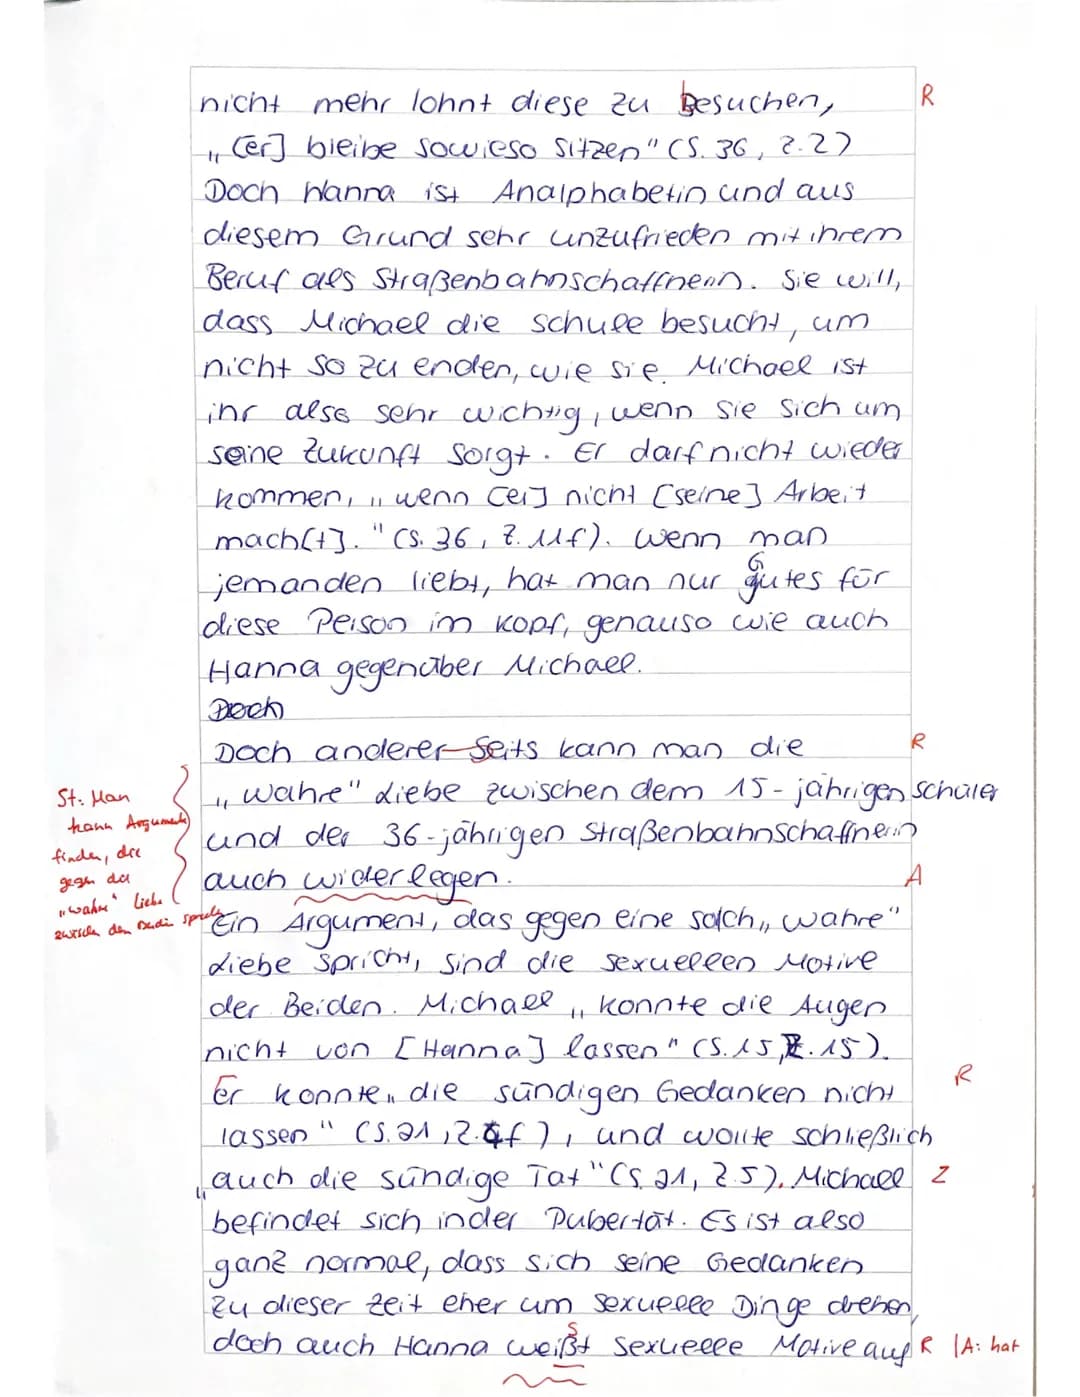 nicht mehr lohnt diese zu Besuchen, R
„[er] bleibe sowieso sitzen" (S. 36, Z. 2)
Doch Hanna ist Analphabetin und aus
diesem Grund sehr unzufrieden mit ihrem
Beruf als Straßenbahnschaffnerin. Sie will,
dass Michael die Schule besucht, um
nicht so zu enden, wie sie. Michael ist
ihr also sehr wichtig, wenn sie sich um
seine Zukunft sorgt. Er darf nicht wieder
kommen, „wenn [er] nicht [seine] Arbeit
mach[t]." (S. 36, Z. 11f). Wenn man
G
jemanden liebt, hat man nur gutes für
diese Person im Kopf, genauso wie auch
Hanna gegenüber Michael.
Doch
Doch anderer-Seits kann man die R
„wahre" Liebe zwischen dem 15-jährigen Schüler
und der 36-jährigen Straßenbahnschaffnerin
auch widerlegen. A
St: Man
kann Argumente
finden, die
gegen die
„wahre" Liebe
zwischen den Beiden sprechen
Ein Argument, das gegen eine solch „wahre"
Liebe spricht, sind die sexuellen Motive
der Beiden. Michael „konnte die Augen
nicht von [Hanna] lassen" (S. 15, Z. 15).
Er konnte „die sündigen Gedanken nicht R
lassen" (S. 21, Z. 4f), und wollte schließlich
„auch die sündige Tat" (S. 21, Z. 5). Michael Z
befindet sich in der Pubertät. Es ist also
ganz normal, dass sich seine Gedanken
zu dieser Zeit eher um sexuelle Dinge drehen,
s
doch auch Hanna weißt sexuelle Motive auf R |A: hat